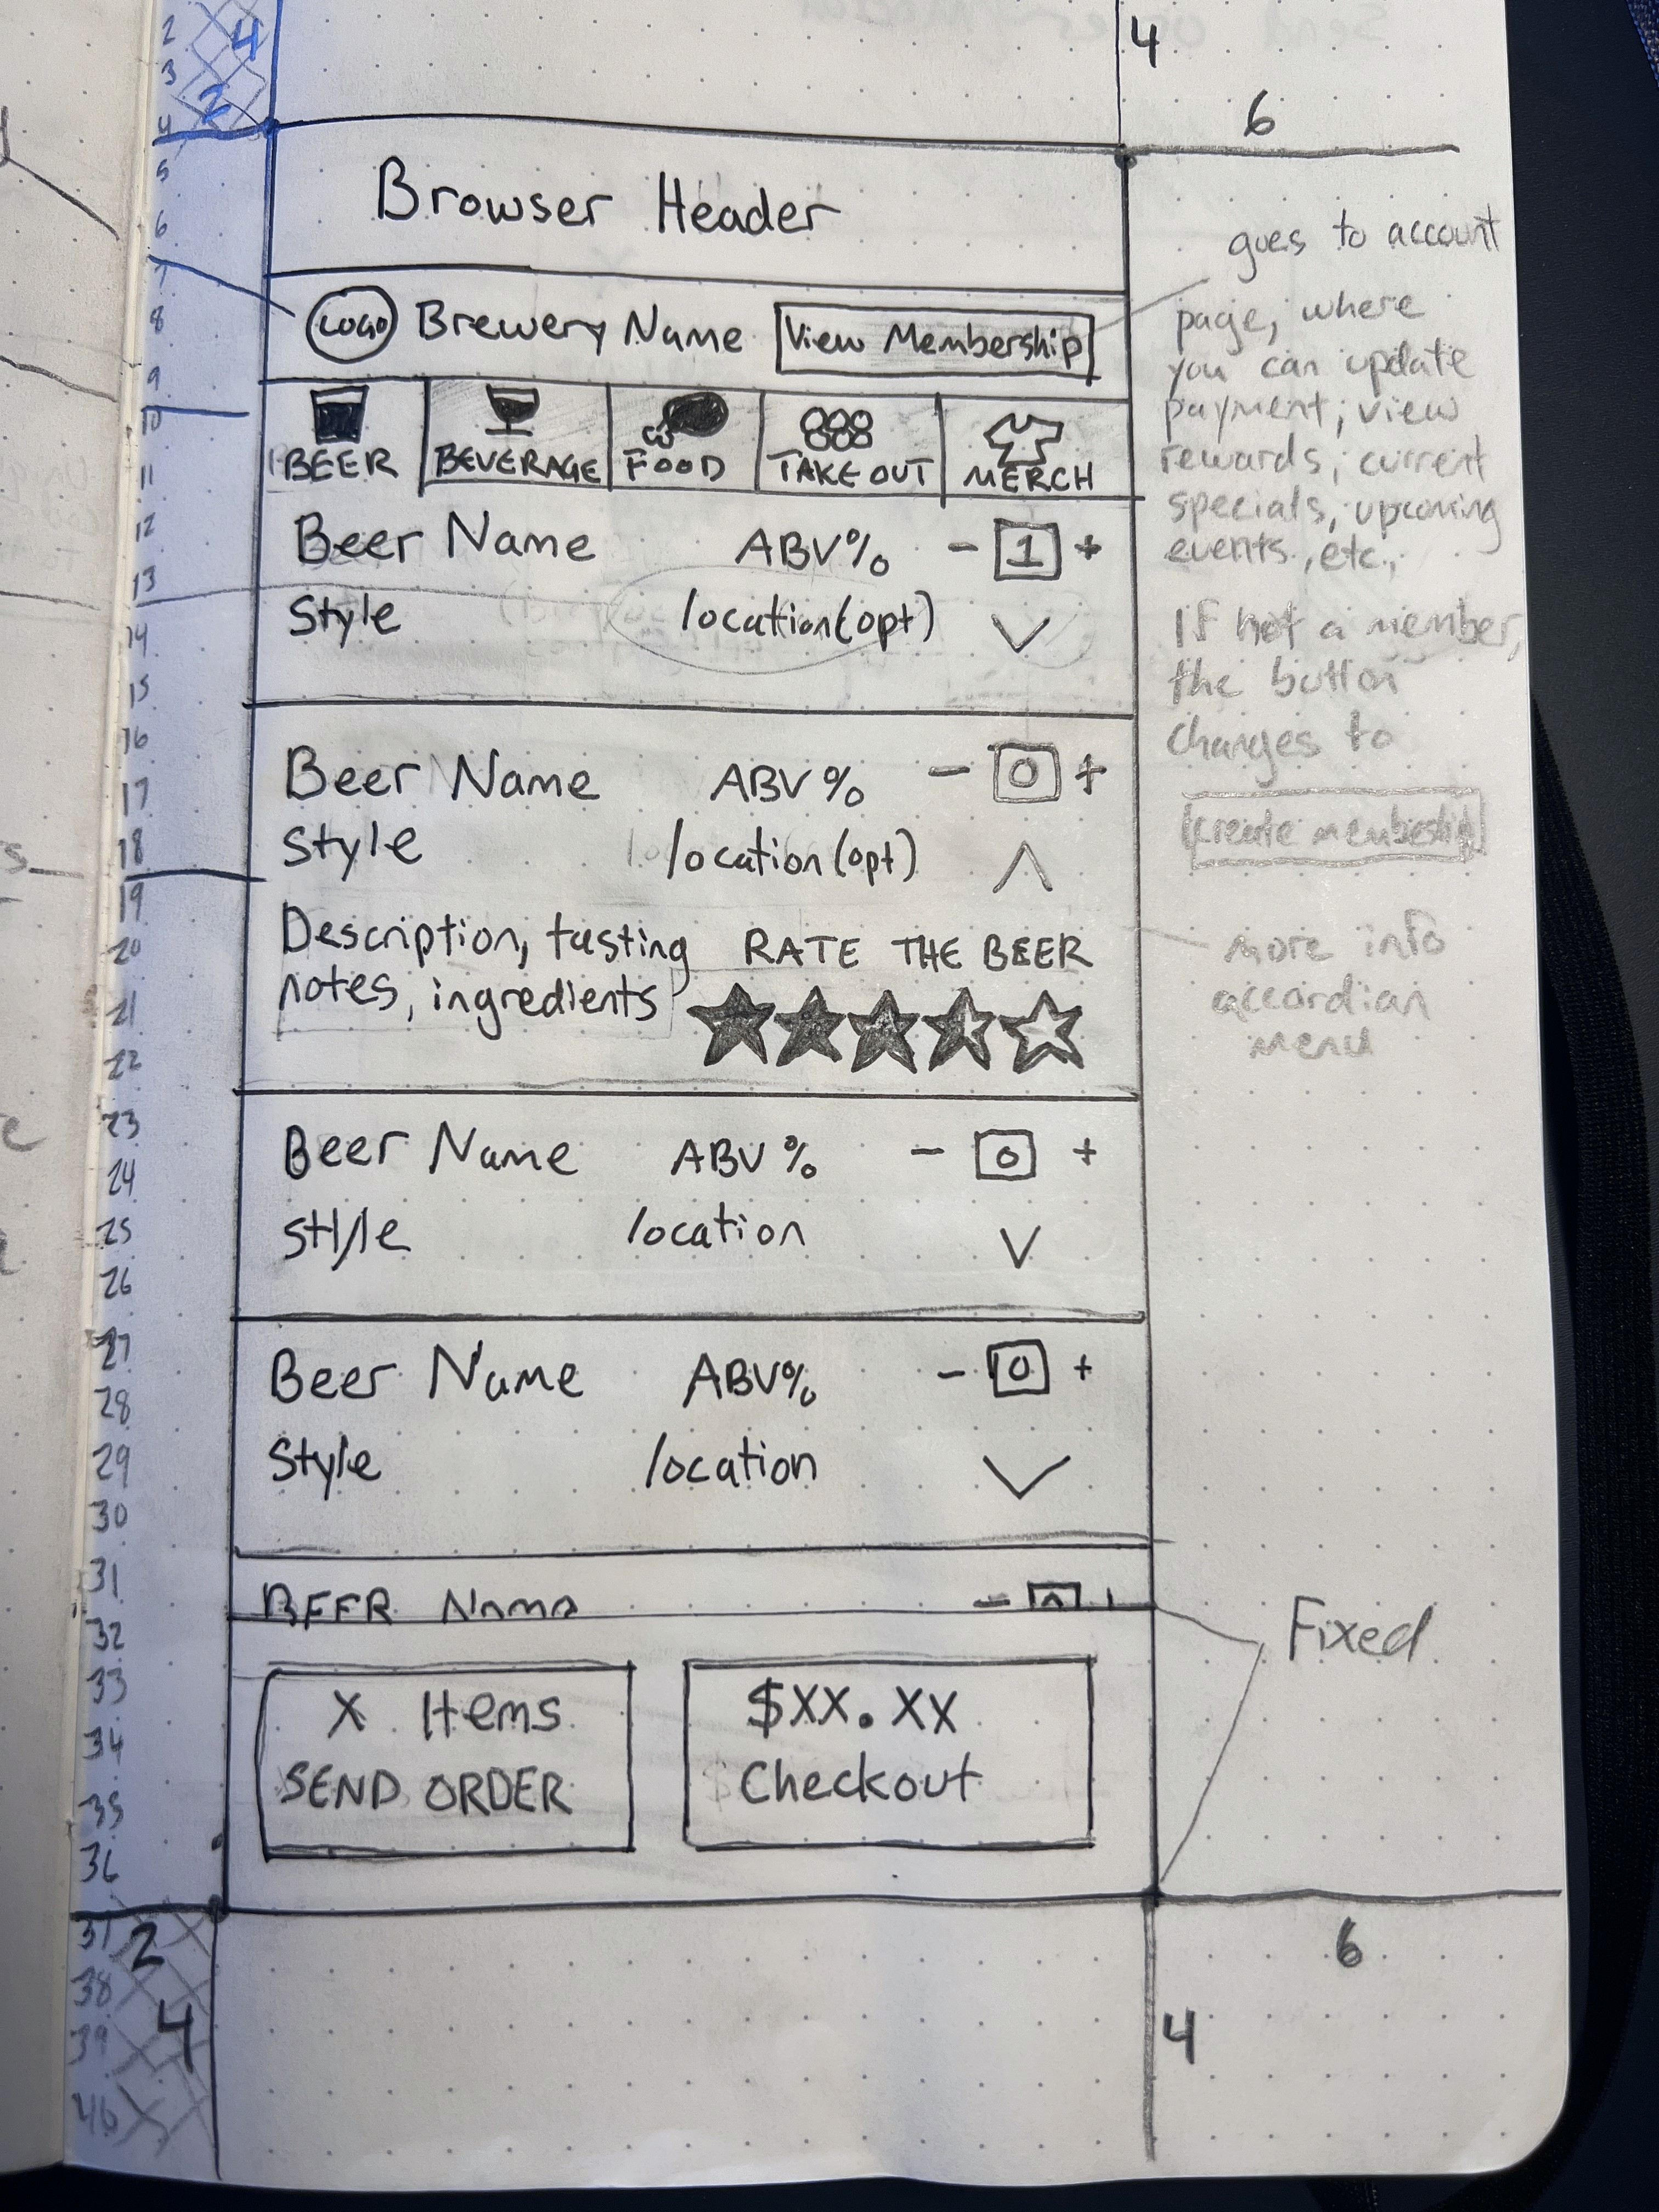 4
6
2
3
4
5
6
7
8
9
10
11
12
13
14
15
16
17
18
19
20
21
22
23
24
25
26
27
28
29
30
31
32
33
34
35
36
37
38
39
40
4
2
Browser Header
LOGO Brewery Name View Membership
BEER BEVERAGE FOOD TAKE OUT MERCH
Beer Name ABV% - 1 +
Style location (opt)
Beer Name ABV% - 0 +
Style location (opt)
Description, tasting
notes, ingredients
RATE THE BEER
Beer Name ABV% - 0 +
Style location
Beer Name ABV% - 0 +
Style location
BEER Name - 0 +
X Items
SEND ORDER
$XX.XX
Checkout
goes to account
page, where
you can update
payment, view
rewards, current
specials, upcoming
events, etc.
If not a member,
the button
changes to
create membership
more info
accordian
menu
Fixed
2
4
6
4